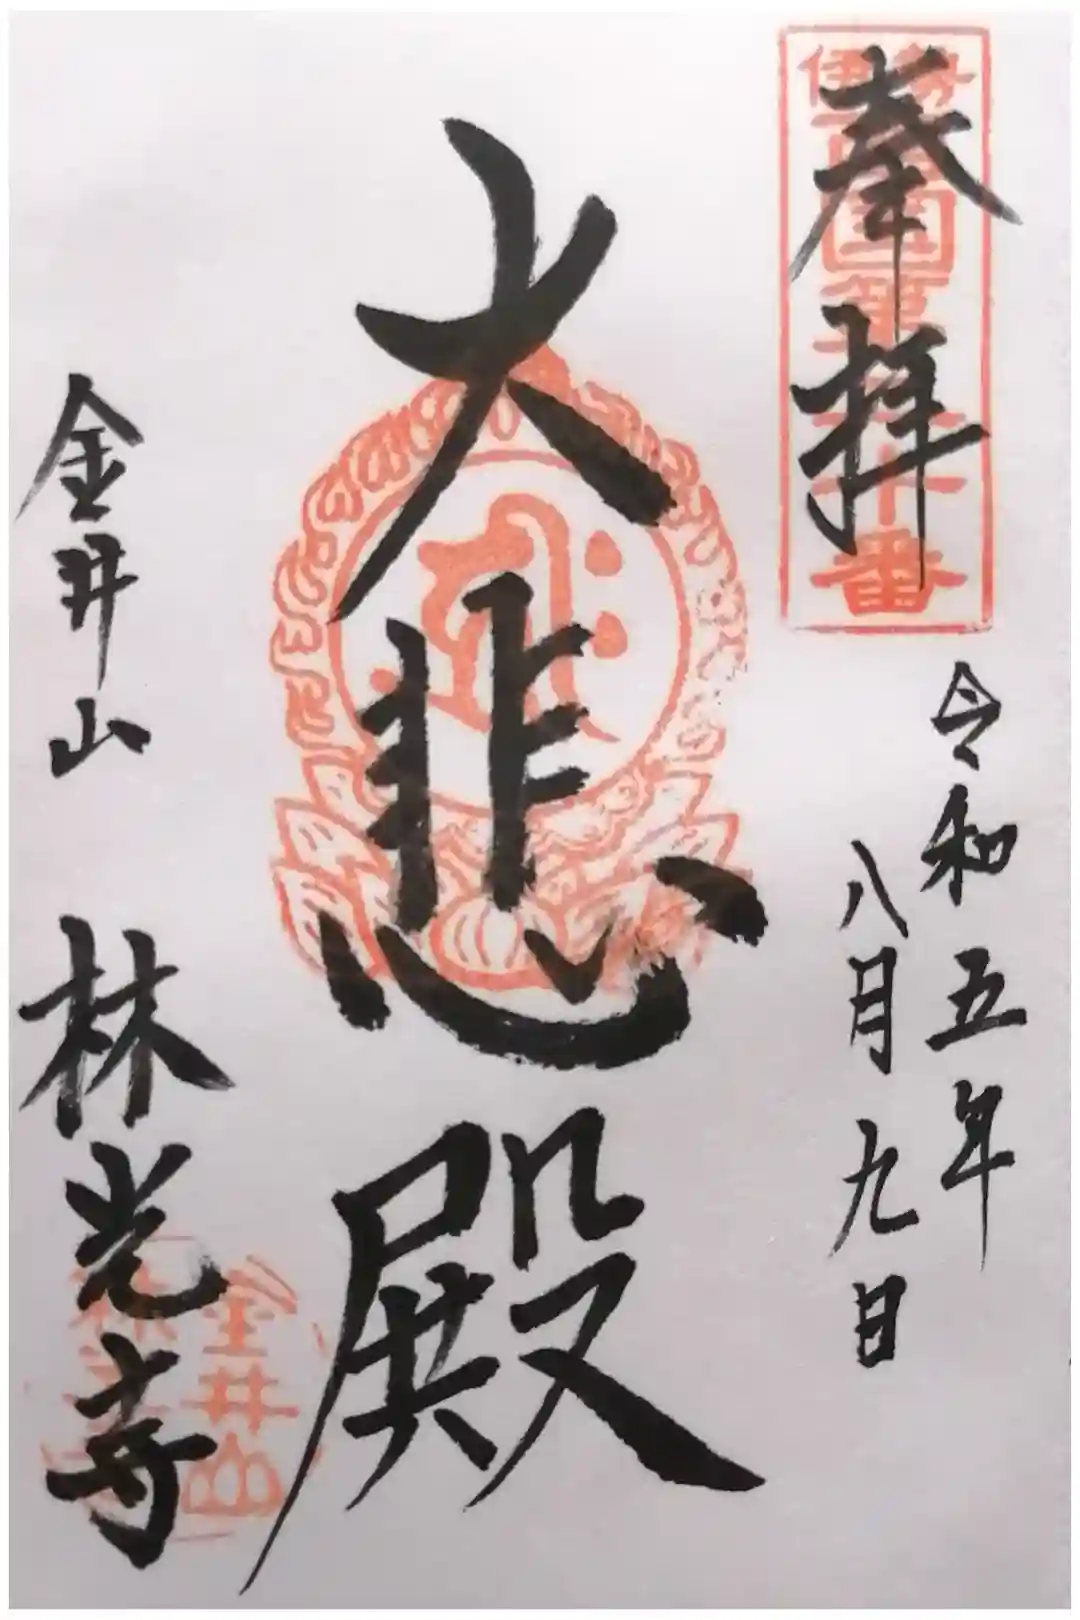 奉拝
令和五年
八月九日
大悲殿
金井山 林光寺
金井山